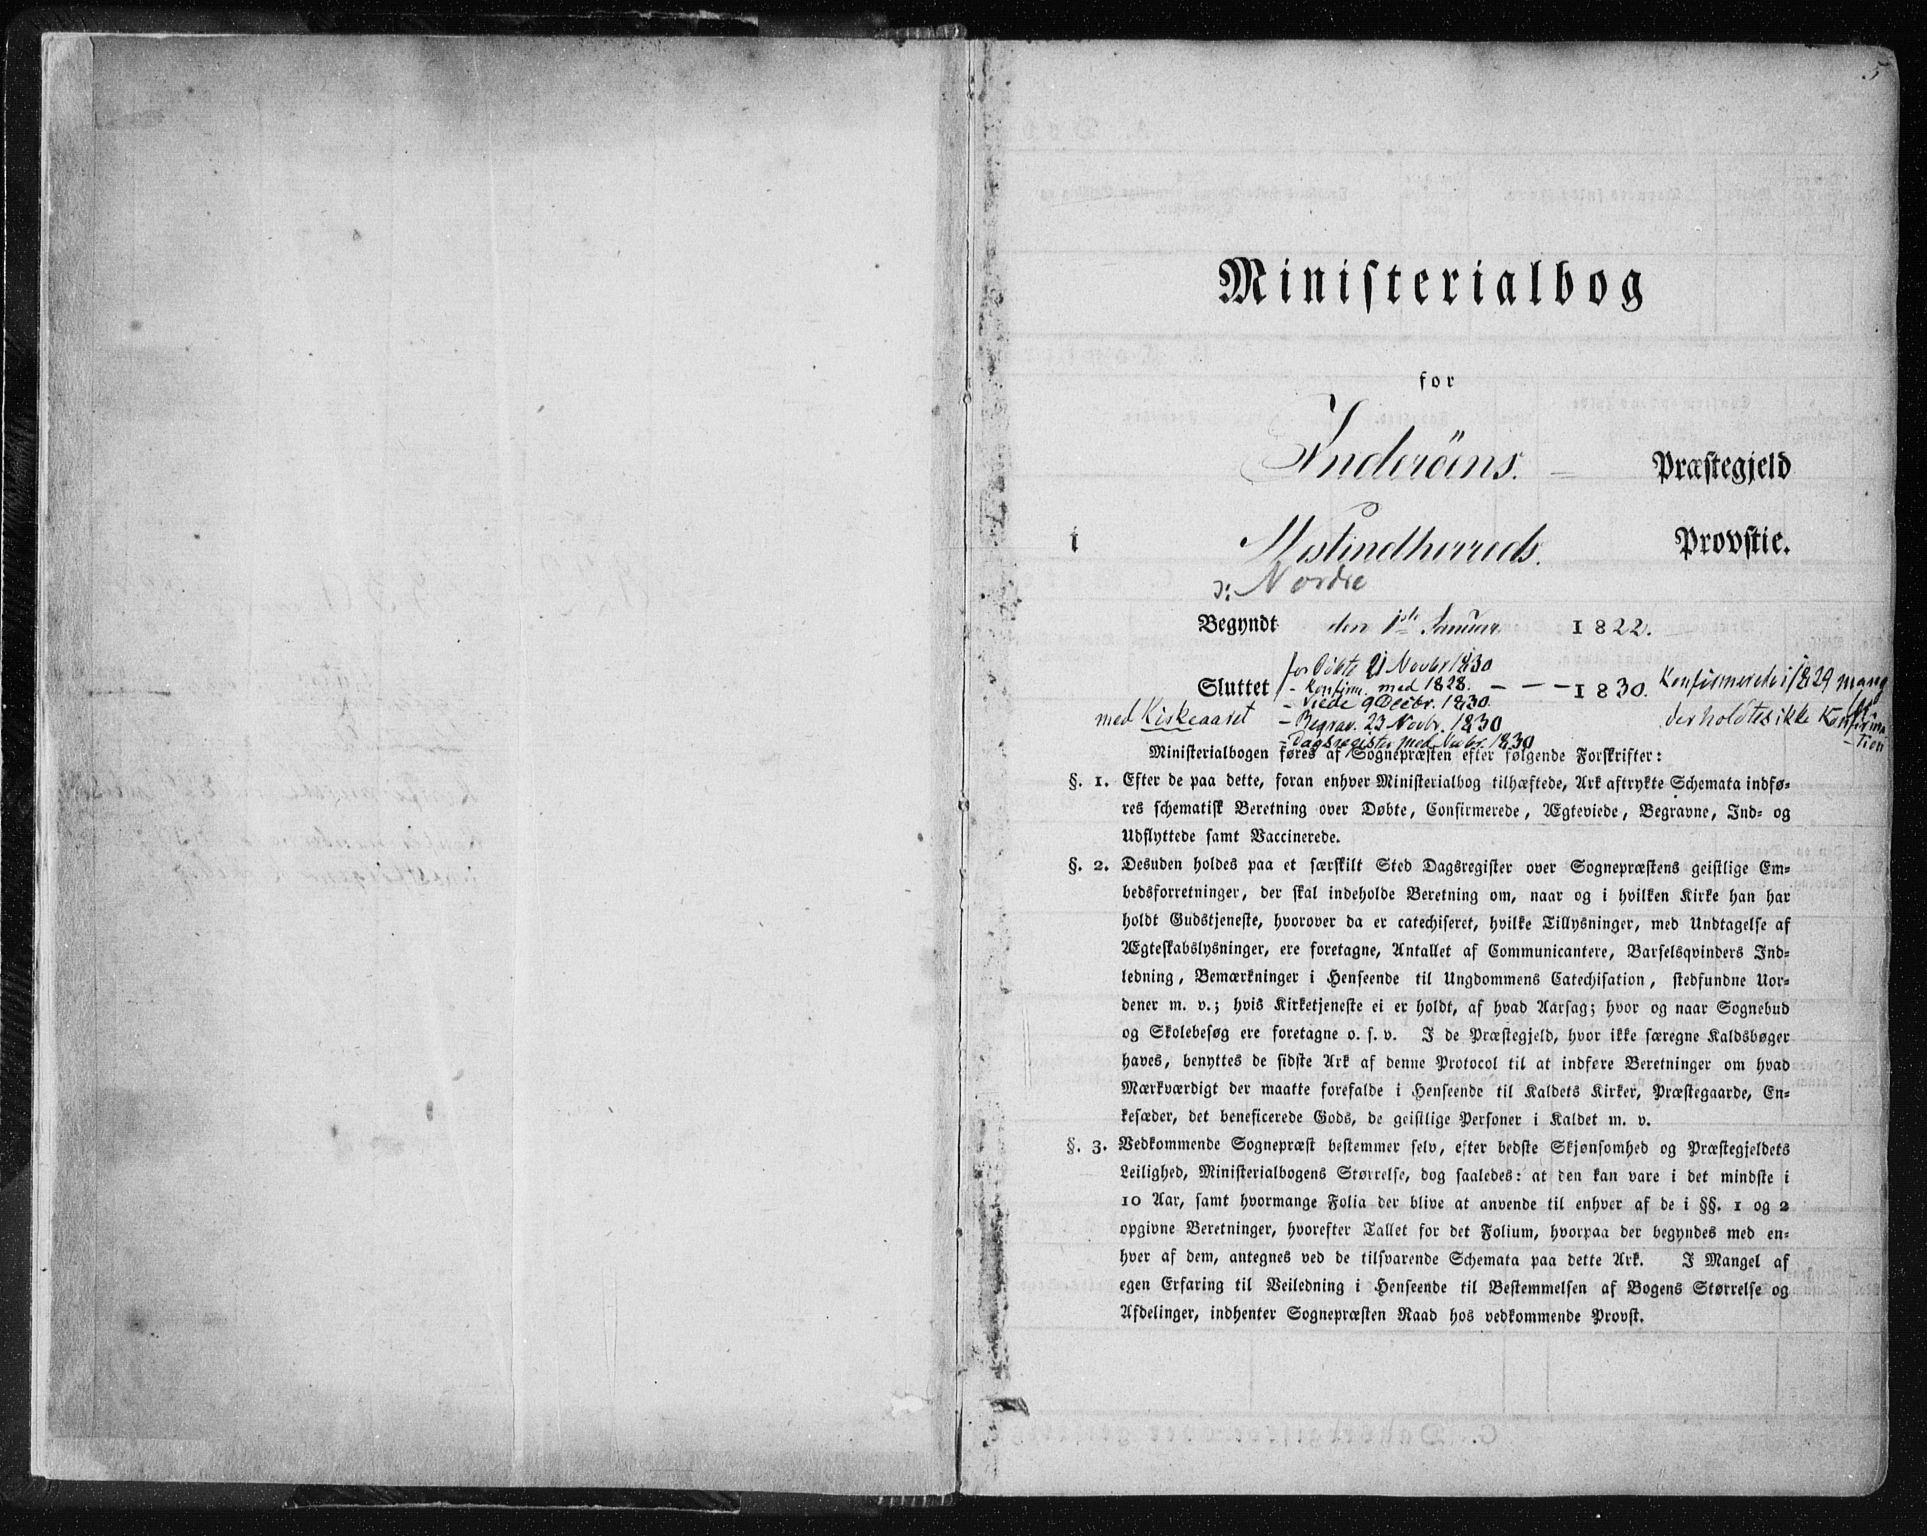 5
Ministerialbog
for
Inderöens. Præstegjeld
i Provstie.
ɔ: Nordre
Begyndt den 1ste Januar 1822.
for Döbte 21 Novbr 1830
Sluttet - Konfirm. med 1828. - - - 1830. Konfirmerede i 1829 mang
- Viede 9 Decbr. 1830.
med Kirkeaaret - Begrav. 23 Novbr. 1830 der holdtes ikke Konfirma
- Dagsregister med Novbr. 1830 - tion
Ministerialbogen føres af Sognepræsten efter følgende Forskrifter:
§. 1. Efter de paa dette, foran enhver Ministerialbog tilhæftede, Ark aftrykte Schemata indfø-
res schematisk Beretning over Døbte, Confirmerede, Ægteviede, Begravne, Ind- og
Udflyttede samt Vaccinerede.
§. 2. Desuden holdes paa et særskilt Sted Dagsregister over Sognepræstens geistlige Em-
bedsforretninger, der skal indeholde Beretning om, naar og i hvilken Kirke han har
holdt Gudstjeneste, hvorover da er catechiseret, hvilke Tillysninger, med Undtagelse af
Ægteskabslysninger, ere foretagne, Antallet af Communicantere, Barselqvinders Ind-
ledning, Bemærkninger i Henseende til Ungdommens Catechisation, stedfundne Uor-
dener m. v.; hvis Kirketjeneste ei er holdt, af hvad Aarsag; hvor og naar Sognebud
og Skolebesøg ere foretagne o. s. v. I de Præstegjeld, hvor ikke særegne Kaldsbøger
haves, benyttes de sidste Ark af denne Protocol til at indføre Beretninger om hvad
Mærkværdigt der maatte forefalde i Henseende til Kaldets Kirker, Præstegaarde, En-
kesæder, det beneficerede Gods, de geistlige Personer i Kaldet m. v.
§. 3. Vedkommende Sognepræst bestemmer selv, efter bedste Skjønsomhed og Præstegjeldets
Leilighed, Ministerialbogens Størrelse, dog saaledes: at den kan vare i det mindste i
10 Aar, samt hvormange Folia der blive at anvende til enhver af de i §§. 1 og 2
opgivne Beretninger, hvorefter Tallet for det Folium, hvorpaa der begyndes med en-
hver af dem, antegnes ved de tilsvarende Schemata paa dette Ark. I Mangel af
egen Erfaring til Veiledning i Henseende til Bestemmelsen af Bogens Størrelse og
Afdelinger, indhenter Sognepræsten Raad hos vedkommende Provst.